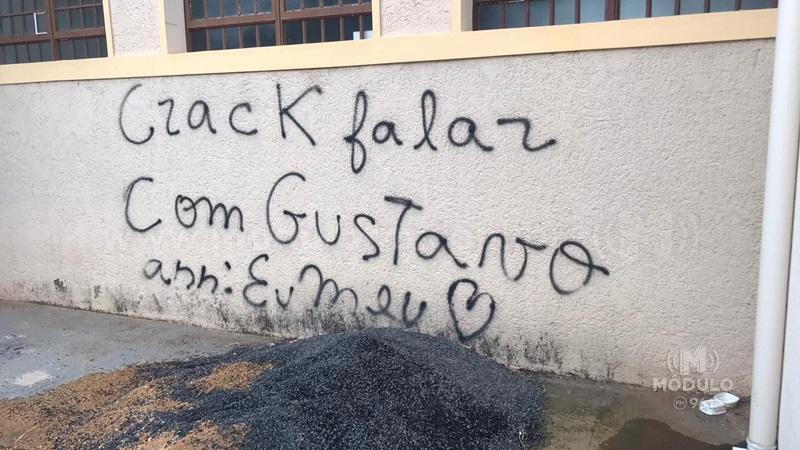 Crack falar
Com Gustavo
ann: Eu meu ♡
MODULO
FM